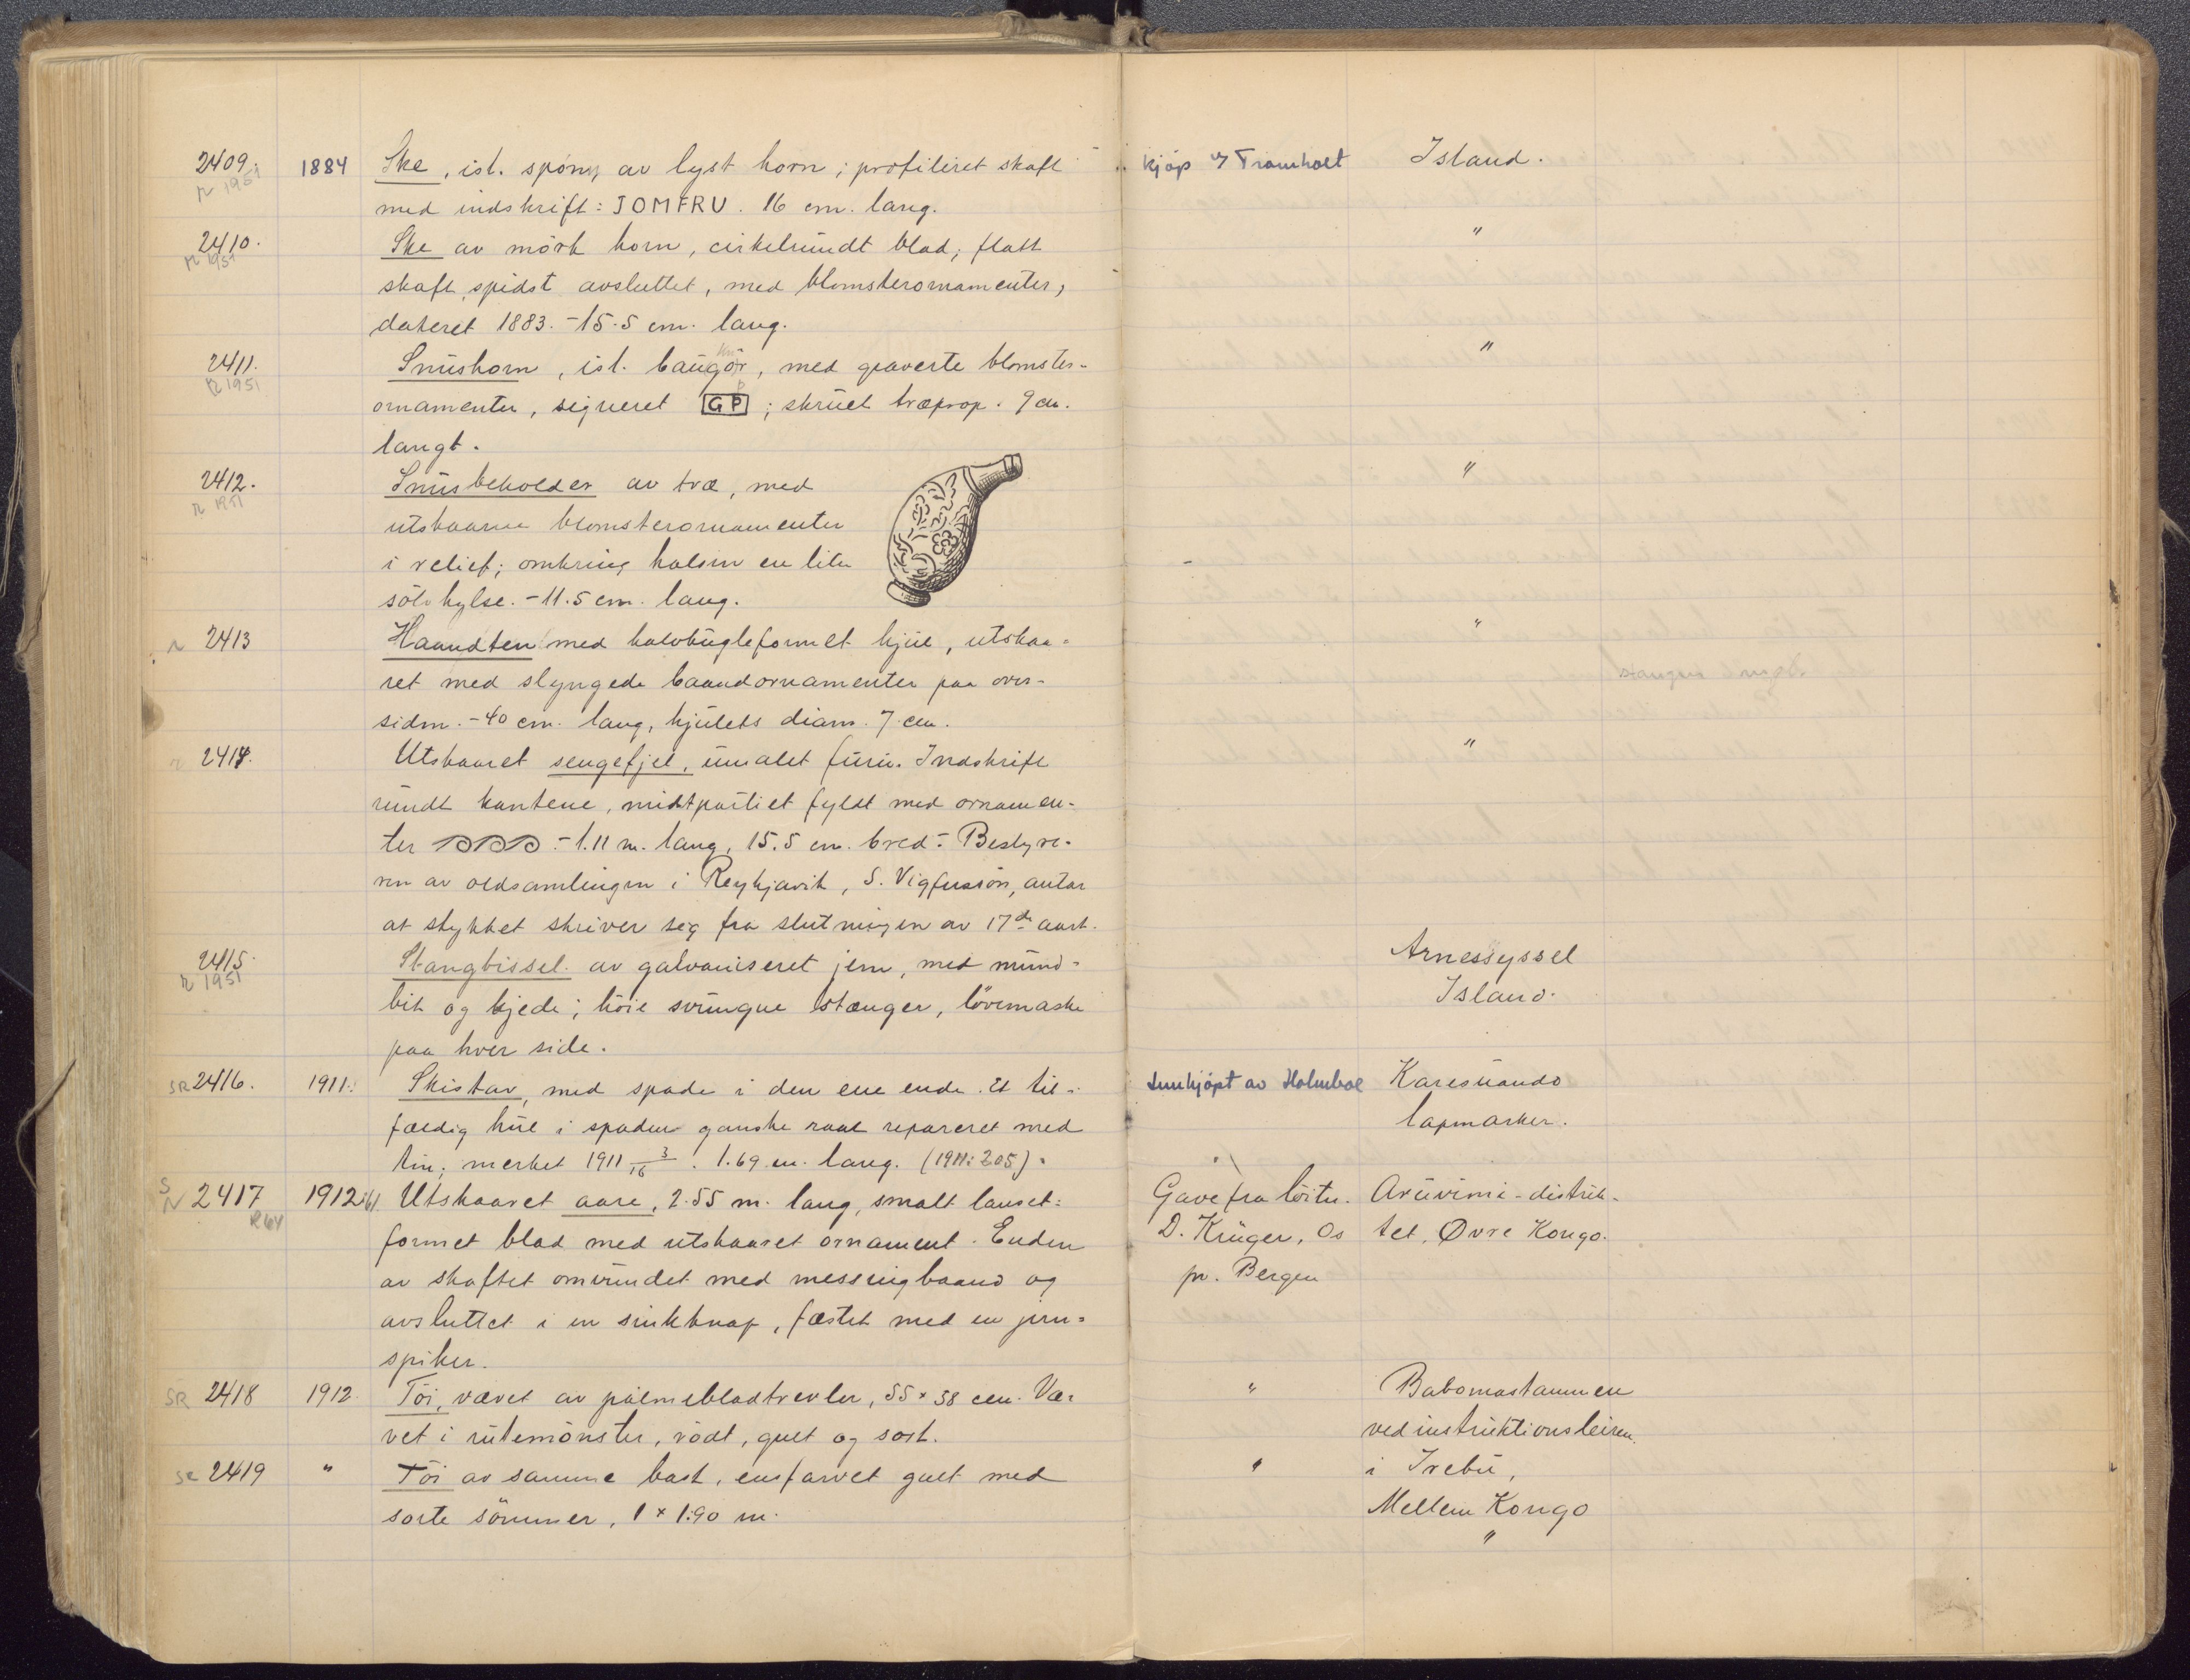 2409. 1884 Ske, isl. spónn av lyst horn; profileret skaft kjöp v/ Tramholt Island.
R 1951
med indskrift: JOMFRU. 16 cm. lang.
2410. Ske av mörk horn, cirkelrundt blad; flatt "
R 1951
skaft, spidst avsluttet, med blomsterornamenter,
dateret 1883. - 15.5 cm. lang.
2411. Snushorn, isl. baugór, med graverte blomster- "
R 1951
ornamenter, signeret GP; skruet træprop. 9 cm.
langt.
2412. Snusbeholder av træ, med "
R 1951
utskaarne blomsterornamenter
i relief; omkring halsen en liten
sölvhylse. - 11.5 cm. lang.
R 2413 Haandten med halvkugleformet hjul, utskaa- "
ret med slyngede baandornamenter paa over-
siden. - 40 cm. lang, hjulets diam. 7 cm.
R 2414. Utskaaret sengefjel, umalet furu. Indskrift "
rundt kantene, midtpartiet fyldt med ornamen-
ter - 1.11 m. lang, 15.5 cm. bred. - Bestyre-
ren av oldsamlingen i Reykjavik, S. Vigfusson, antar
at stykket skriver seg fra slutningen av 17de aarh.
2415. Stangbissel av galvaniseret jern, med mund- Arnessyssel
R 1951
bit og kjede; höie svungne stænger, lövemaske Island.
paa hver side.
SR 2416. 1911. Skistav, med spade i den ene ende. Et til- Innkjöpt av Holmboe Karesuando
fældig hul i spaden ganske raat repareret med lapmarker.
tin; merket 1911 3/16. 1.69 m. lang. (1911: 205).
S N 2417 1912:61 Utskaaret aare, 2.55 m. lang, smalt lanset- Gave fra löitn. Aruvimi-distrik-
R 64
formet blad med utskaaret ornament. Enden D. Krüger, Os tet, Øvre Kongo.
av skaftet omvundet med messingbaand og pr. Bergen
avsluttet i en sinkknap, fæstet med en jern-
spiker.
SR 2418 1912. Töi, vævet av palmebladtrevler, 55 × 38 cm. Væ- " Babomastammen
vet i rutemönster, rödt, gult og sort. ved instruktionsleiren
SR 2419 " Töi av samme bast, ensfarvet gult med " i Irebu,
sorte sömmer, 1 × 1.90 m. Mellem Kongo
"